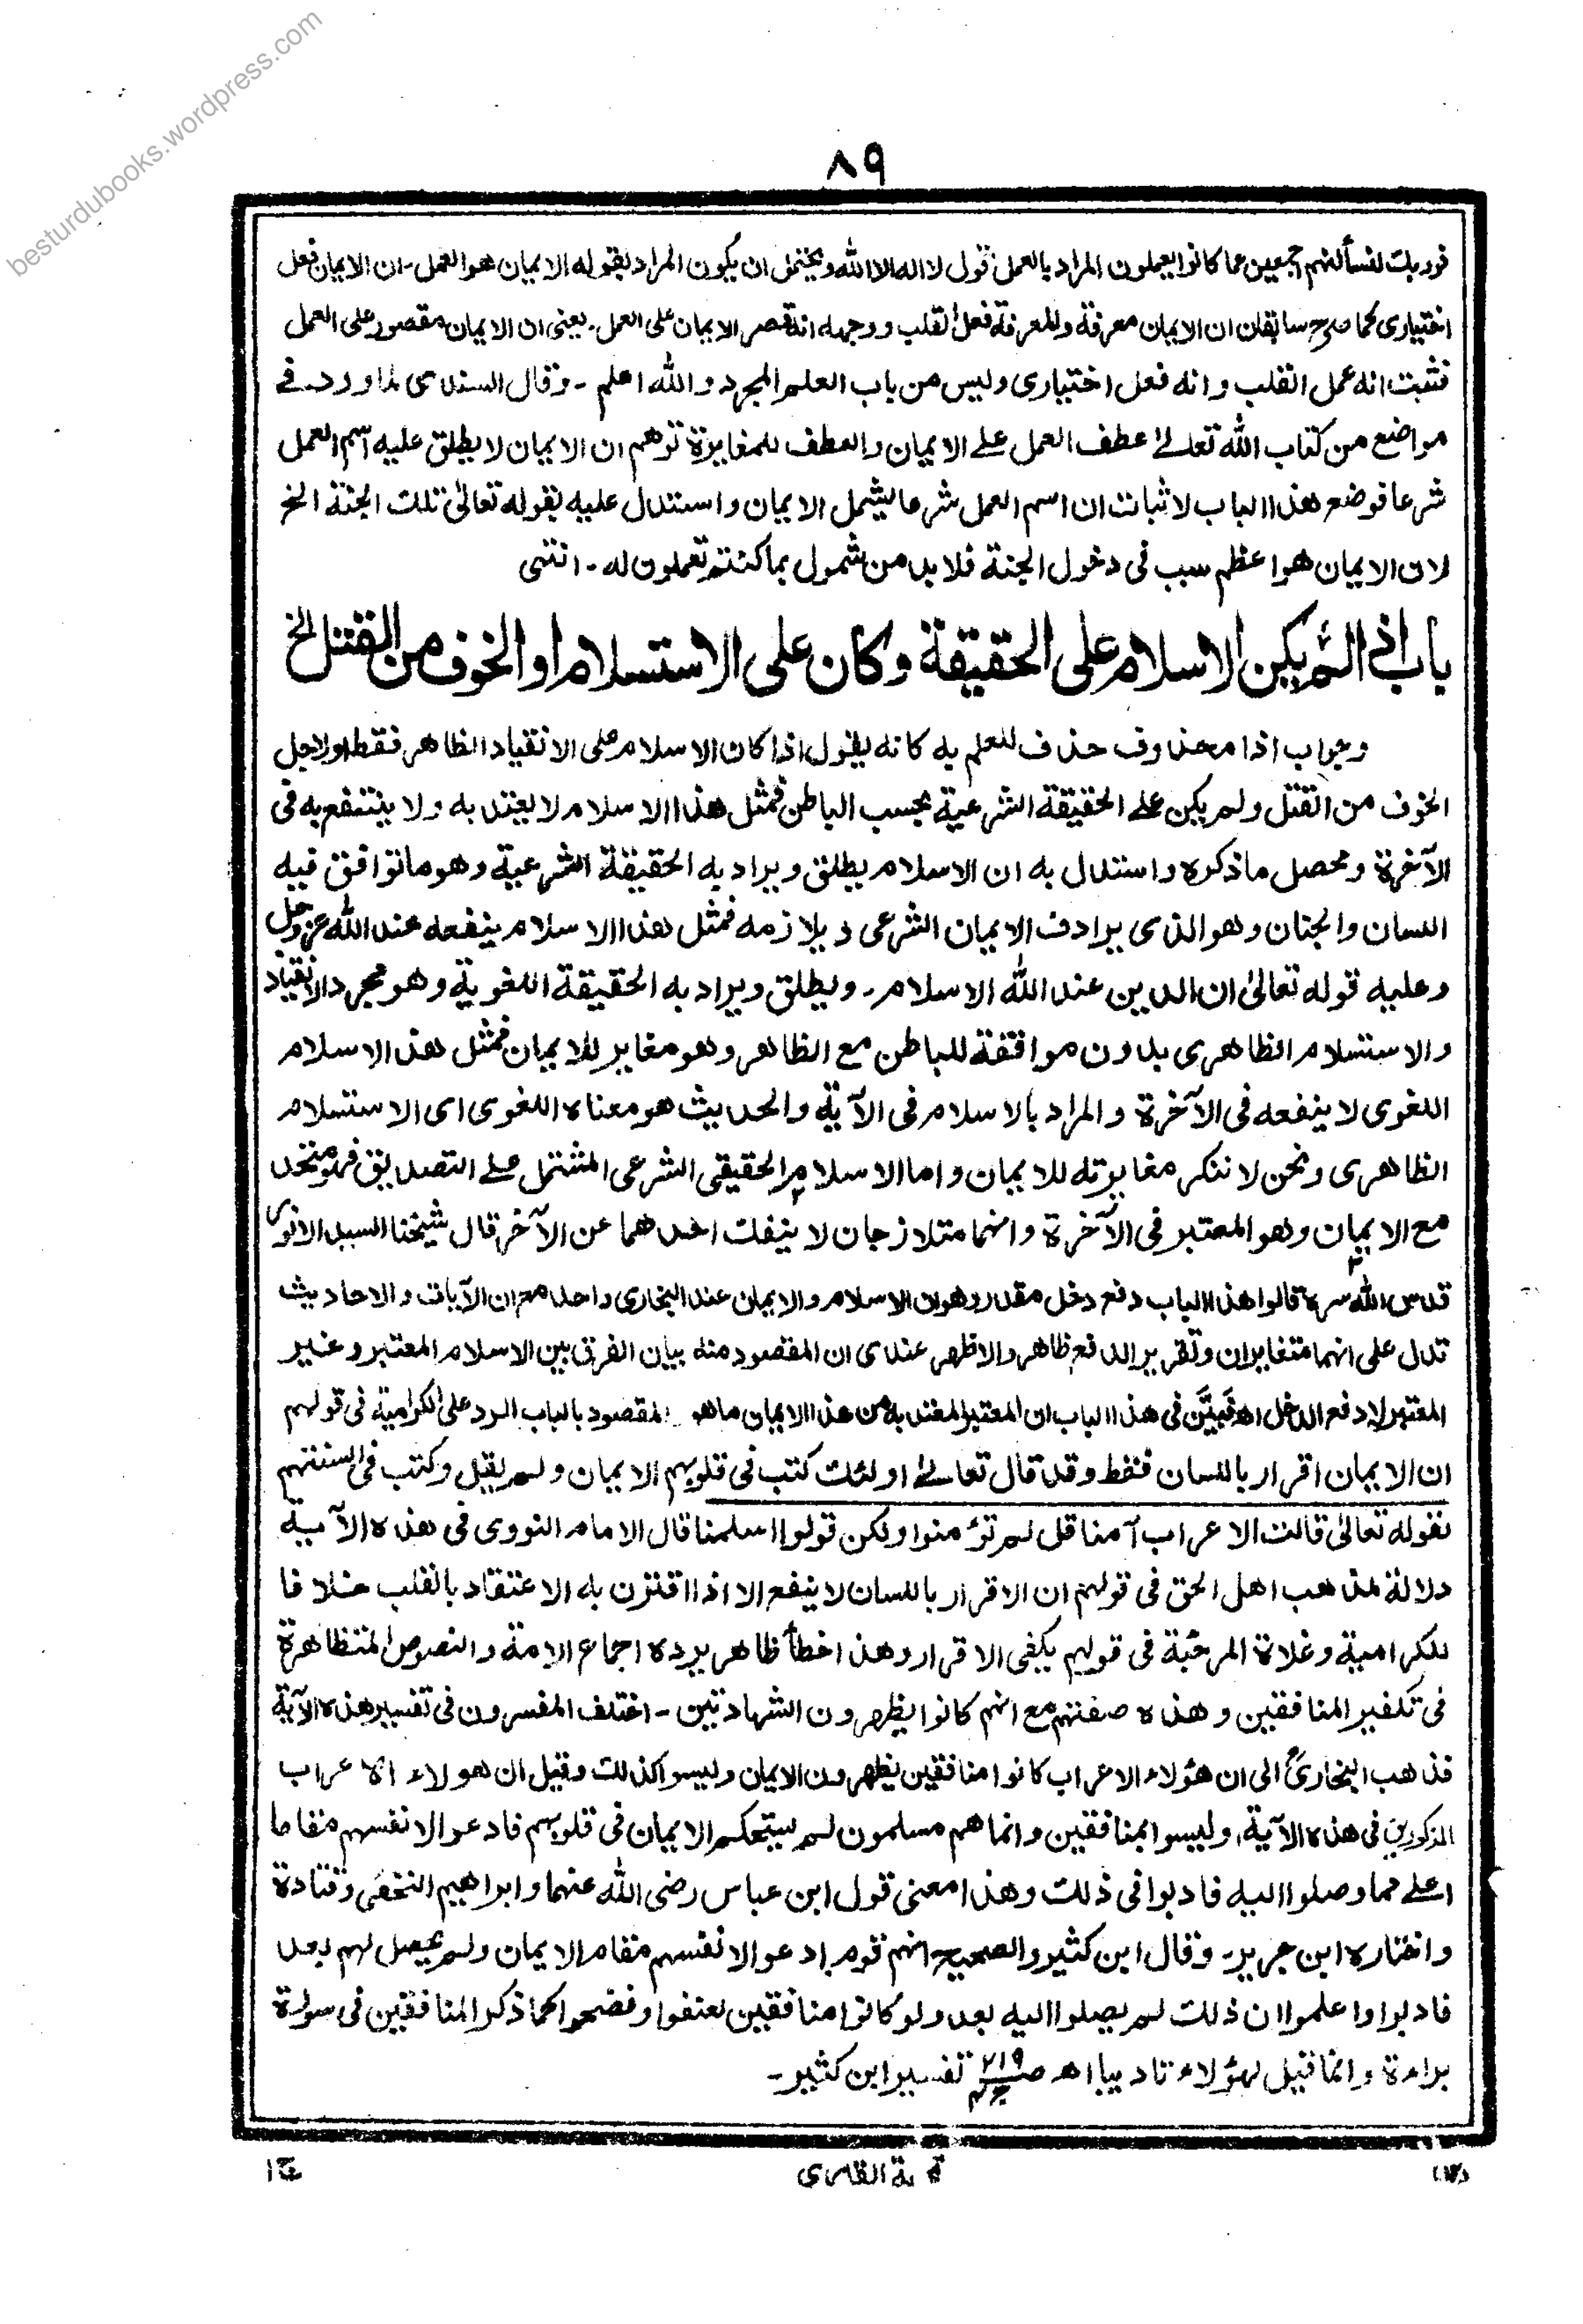 besturdubooks.wordpress.com
٨٩
فوربك لنسألنهم اجمعين عما كانوا يعملون المراد بالعمل قول لا اله الا الله ويحتمل ان يكون المراد بقوله الايمان هو العمل - ان الايمان فعل
اختيارى كما صرح سابقا ان الايمان معرفة والمعرفة فعل القلب ووجهه انه قصر الايمان على العمل - يعنى ان الايمان مقصور على العمل
فثبت انه عمل القلب وانه فعل اختيارى وليس من باب العلم المجرد والله اعلم - وقال السندى لما ورد فى
مواضع من كتاب الله تعالى عطف العمل على الايمان والعطف للمغايرة توهم ان الايمان لا يطلق عليه اسم العمل
شرعا فوضع هذا الباب لاثبات ان اسم العمل شرعا يشمل الايمان واستدل عليه بقوله تعالى تلك الجنة الخ
لان الايمان هو اعظم سبب فى دخول الجنة فلا بد من شمول بما كنتم تعملون له - انتهى
باب اذا لم يكن الاسلام على الحقيقة وكان على الاستسلام او الخوف من القتل الخ
وجواب اذا محذوف حذف للعلم به كانه يقول اذا كان الاسلام على الانقياد الظاهر فقط او لاجل
الخوف من القتل ولم يكن على الحقيقة الشرعية بحسب الباطن فمثل هذا الاسلام لا يعتد به ولا ينتفع به فى
الآخرة ومحصل ما ذكره واستدل به ان الاسلام يطلق ويراد به الحقيقة الشرعية وهو ما توافق فيه
اللسان والجنان وهو الذى يرادف الايمان الشرعى ويلازمه فمثل هذا الاسلام ينفعه عند الله عز وجل
وعليه قوله تعالى ان الدين عند الله الاسلام - ويطلق ويراد به الحقيقة اللغوية وهو مجرد الانقياد
والاستسلام الظاهرى بدون موافقة للباطن مع الظاهر وهو مغاير للايمان فمثل هذا الاسلام
اللغوى لا ينفعه فى الآخرة والمراد بالاسلام فى الآية والحديث هو معناه اللغوى اى الاستسلام
الظاهرى ونحن لا ننكر مغايرته للايمان واما الاسلام الحقيقى الشرعى المشتمل على التصديق فهو متحد
مع الايمان وهو المعتبر فى الآخرة وانهما متلازمان لا ينفك احدهما عن الآخر قال شيخنا السيد الانور
قدس الله سره قالوا هذا الباب دفع دخل مقدر وهو ان الاسلام والايمان عند البخارى واحد مع ان الآيات والاحاديث
تدل على انهما متغايران وتقرير الدفع ظاهر والاظهر عندى ان المقصود منه بيان الفرق بين الاسلام المعتبر وغير
المعتبر لا دفع الدخل اھ فبيَّن فى هذا الباب ان المعتبر المعتد به من هذا الايمان ما هو المقصود بالباب الرد على الكرامية فى قولهم
ان الايمان اقرار باللسان فقط وقد قال تعالى اولئك كتب فى قلوبهم الايمان ولم يقل وكتب فى السنتهم
لقوله تعالى قالت الاعراب آمنا قل لم تؤمنوا ولكن قولوا اسلمنا قال الامام النووى فى هذه الآية
دلالة لمذهب اهل الحق فى قولهم ان الاقرار باللسان لا ينفع الا اذا اقترن به الاعتقاد بالقلب خلافا
للكرامية وغلاة المرجئة فى قولهم يكفى الاقرار وهذا خطأ ظاهر يرده اجماع الامة والنصوص المتظاهرة
فى تكفير المنافقين وهذه صفتهم مع انهم كانوا يظهرون الشهادتين - اختلف المفسرون فى تفسير هذه الآية
فذهب البخارىؒ الى ان هؤلاء الاعراب كانوا منافقين يظهرون الايمان وليسوا كذلك وقيل ان هولاء الاعراب
المذكورين فى هذه الآية، وليسوا بمنافقين وانما هم مسلمون لم يستحكم الايمان فى قلوبهم فادعوا لانفسهم مقاما
اعلى مما وصلوا اليه فادبوا فى ذلك وهذا معنى قول ابن عباس رضى الله عنهما وابراهيم النخعى وقتادة
واختاره ابن جرير - وقال ابن كثير والصحيح انهم قوم ادعوا لانفسهم مقام الايمان ولم يحصل لهم بعد
فادبوا واعلموا ان ذلك لم يصلوا اليه بعد ولو كانوا منافقين لعنفوا وفضحوا كما ذكر المنافقين فى سورة
براءة وانما قيل لهؤلاء تاديبا اھ صـ ٢١٩ ج ٤ تفسير ابن كثير -
(١٢) تحفة القارى ج ١